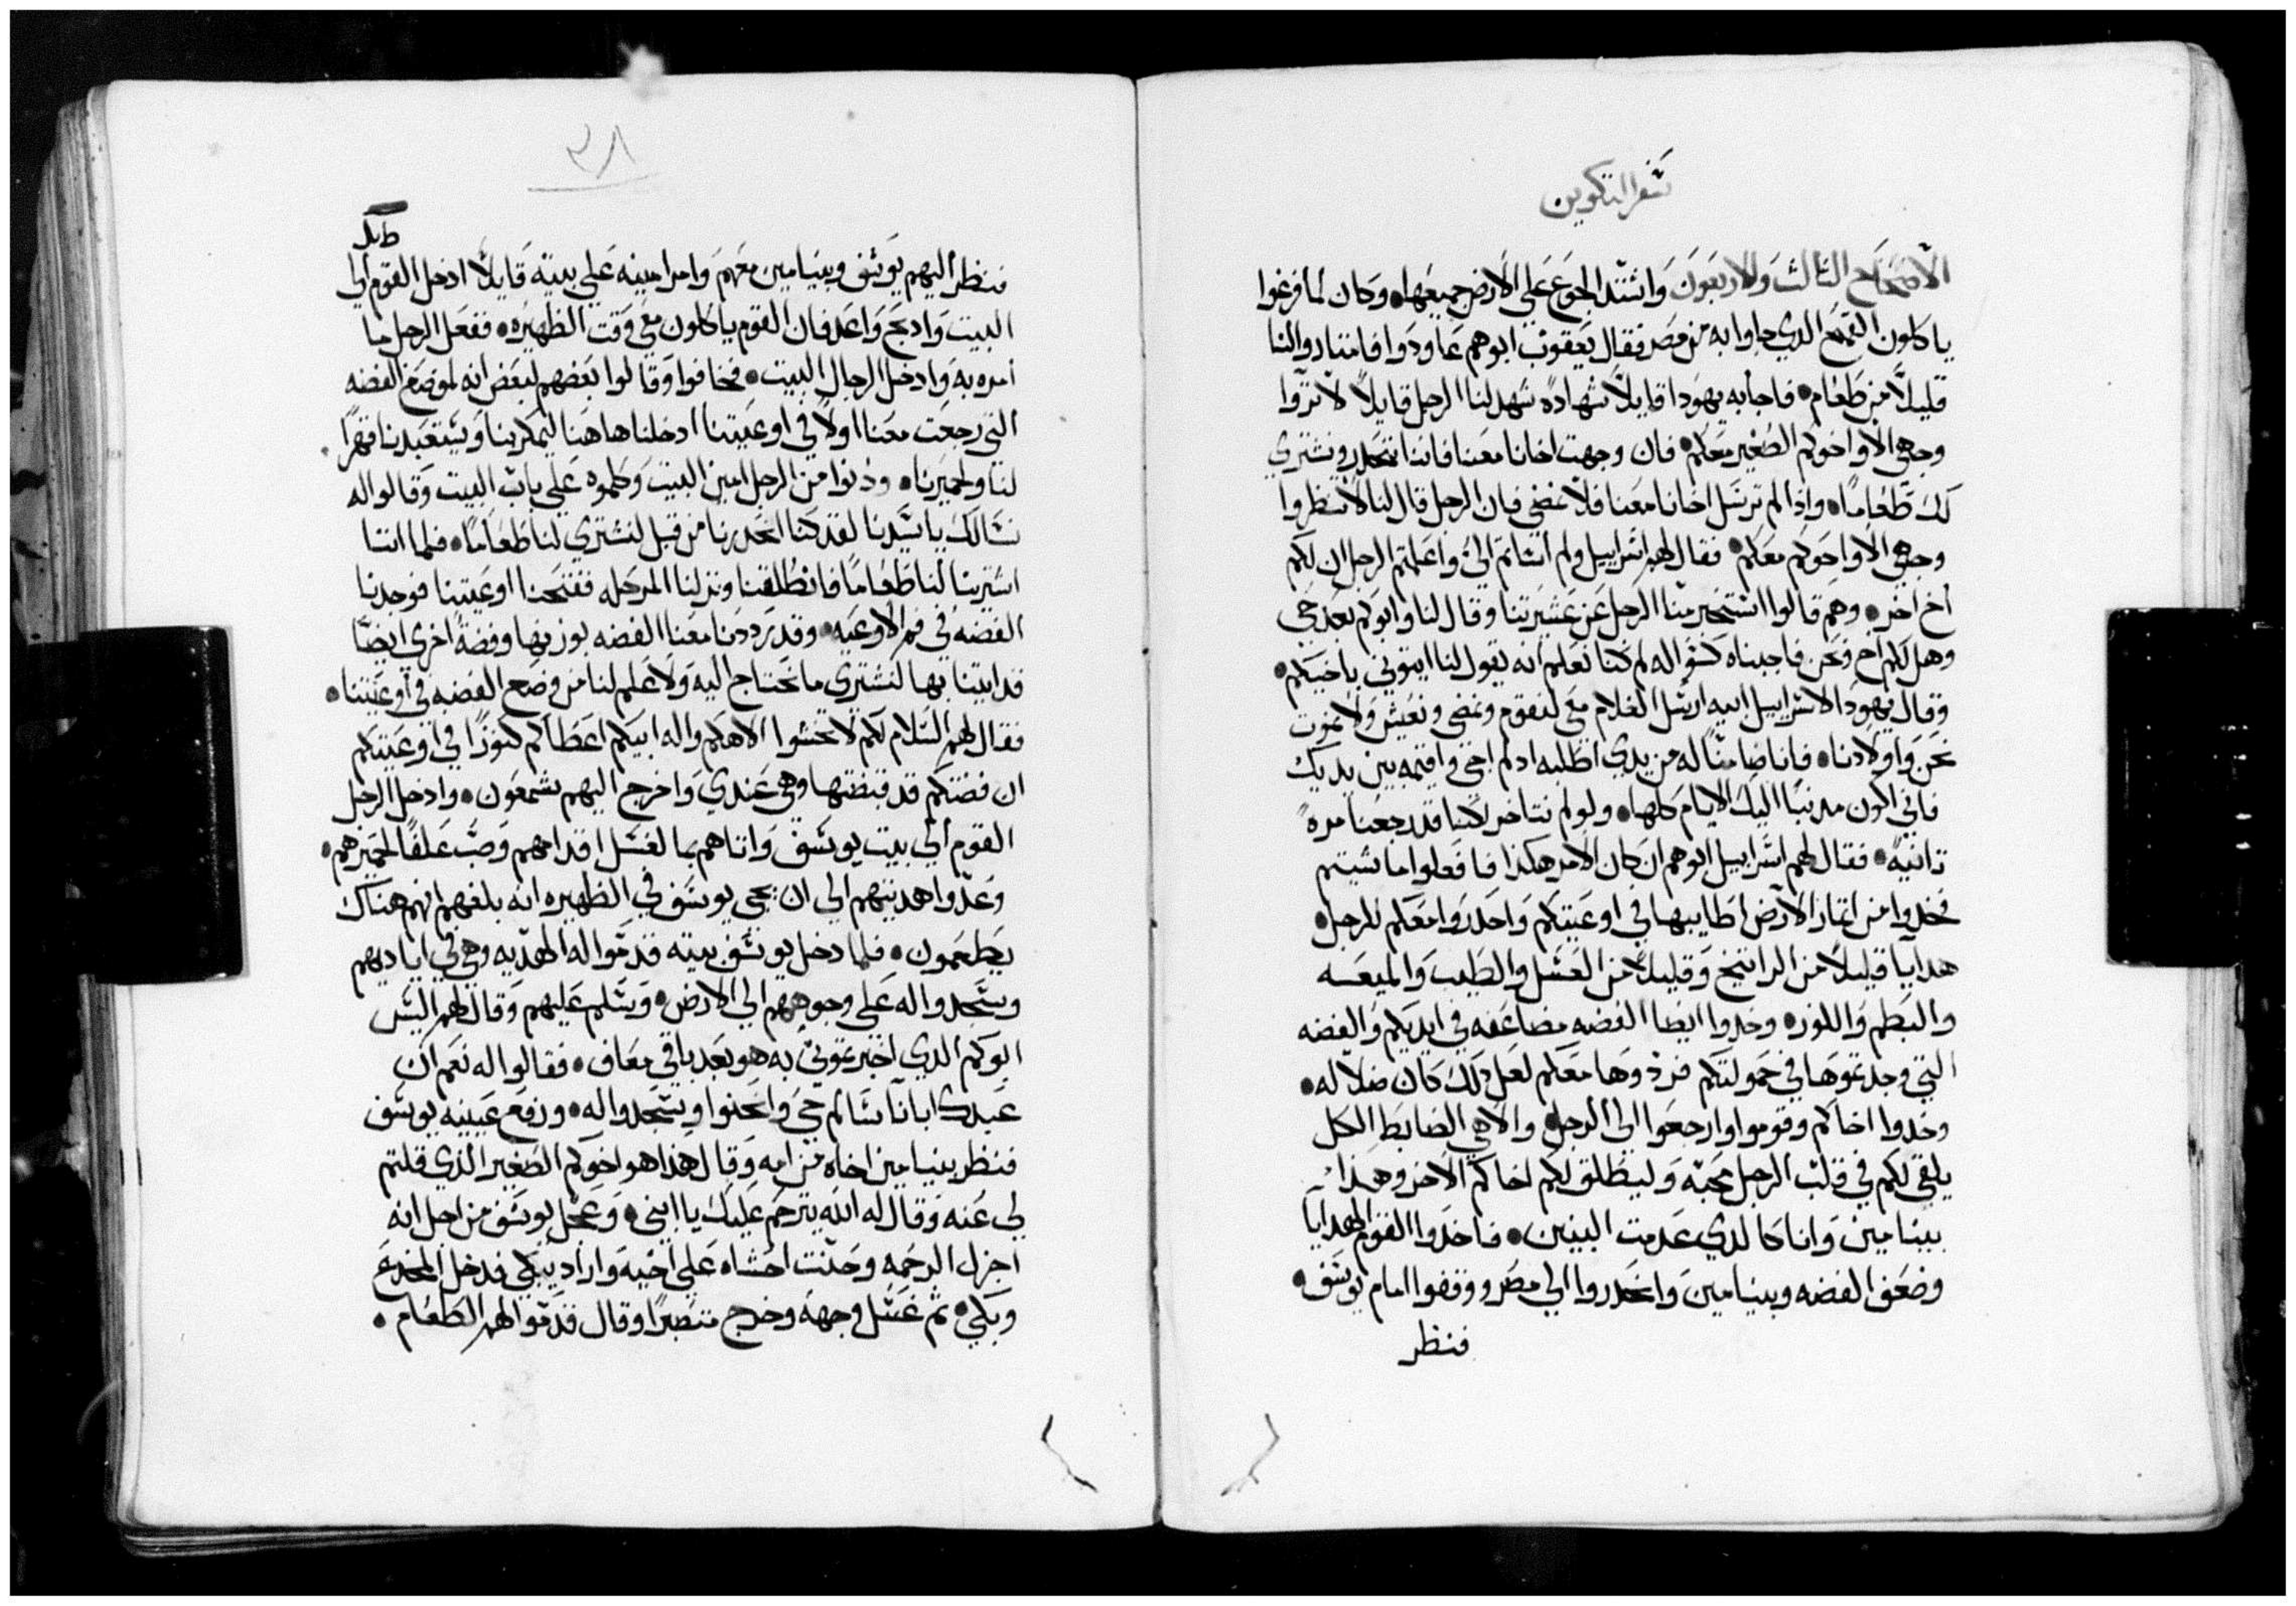 سفر التكوين
الاصحاح الثالث والاربعون واشتد الجوع على الارض جميعها وكان لما فرغوا
ياكلون القمح الدي جاوا به من مصر فقال يعقوب ابوهم عاودوا فامتاروا لنا
قليلاً من طعام فاجابه يهودا قايلاً شهادةً شهد لنا الرجل قايلاً لا تروا
وجهي الا واخوكم الصغير معكم فان وجهت اخانا معنا فاننا ننحدر ونشتري
لك طعاماً واذا لم ترسل اخانا معنا فلا نمضي فان الرجل قال لنا لا تنظروا
وجهي الا واخوكم معكم فقال لهم اسراييل ولم اساتم اليَّ واعلمتم الرجل ان لكم
اخ اخر وهم قالوا استخبر منا الرجل عن عشيرتنا وقال لنا وابوكم بعد حي
وهل لكم اخ ونحن فاجبناه كسواله لم كنا نعلم انه يقول لنا ايتوني باخيكم
وقال يهودا لاسراييل ابيه ارسل الغلام معي لنقوم ونمضي ونعيش ولا نموت
نحن واولادنا فانا ضامناً له من يدي اطلبه اد لم اجي واقيمه بين يديك
فاني اكون مدنباً اليك الايام كلها ولو لم نتاخر لكنا قد رجعنا مرةً
تانيةً فقال لهم اسراييل ابوهم ان كان الامر هكذا فافعلوا ما شيتم
فخدوا من اتمار الارض اطايبها في اوعيتكم واحدروا معكم للرجل
هدايا قليلاً من الراتينج وقليلاً من العسل والطيب والميعسه
والبطم واللوز وخدوا ايضا الفضه مضاعفه في ايديكم والفضه
التي وجدتموها في حمولتكم فردوها معكم لعل دلك كان ضلاله
وخدوا اخاكم وقوموا وارجعوا الى الرجل والاهي الضابط الكل
يلقي لكم في قلب الرجل محبه وليطلق لكم اخاكم الاخر وهذا
بينامين وانا كالدي عدمت البنين فاخدوا القوم الهدايا
وضعف الفضه وبينيامين وانحدروا الي مصر ووقفوا امام يوسف
فنظر
٣٨
فنظر اليهم يوسف وبينيامين معهم وامر امينه علي بيته قايلاً ادخل القوم الي
البيت وادبح واعد فان القوم ياكلون معي وقت الظهيره ففعل الرجل ما
امره به وادخل الرجال البيت فخافوا وقالوا بعضهم لبعض انه لموضع الفضه
التي رجعت معنا اولاً في اوعيتنا ادخلنا هاهنا ليمكر بنا ويستعبدنا قهراً
لنا ولحميرنا ودنوا من الرجل امين البيت وكلموه علي باب البيت وقالوا له
نسالك يا سيدنا لقد كنا انحدرنا من قبل لنشتري لنا طعاماً فلما اننا
اشترينا لنا طعاماً فانطلقنا ونزلنا المرحله ففتحنا اوعيتنا فوجدنا
الفضه في فم الاوعيه وقد رددنا معنا الفضه بوزنها وفضةً اخرى ايضاً
قد اتينا بها لنشتري ما نحتاج اليه ولا علم لنا من وضع الفضه في اوعيتنا
فقال لهم السلام لكم لا تخشوا الاهكم واله ابيكم اعطاكم كنوزاً في اوعيتكم
ان فضتكم قد قبضتها وهي عندي واخرج اليهم شمعون وادخل الرجل
القوم الي بيت يوسف واتاهم بما لغسل اقدامهم وصب علفاً لحميرهم
وعدوا هديتهم الي ان يجي يوسف في الظهيره انه بلغهم انهم هناك
يطعمون فلما دخل يوسف بيته قدموا له الهديه وهي في اياديهم
وسجدوا له علي وجوههم الي الارض وسلم عليهم وقال لهم اليس
ابوكم الدي اخبرتموني به هو بعد باقي معاف فقالوا له نعم ان
عبدك ابانا سالم حي وانحنوا وسجدوا له ورفع عينيه يوسف
فنظر بنيامين اخاه من امه وقال هذا هو اخوكم الصغير الذي قلتم
لي عنه وقال له الله يترحم عليك يا ابني وعجل يوسف من اجل انه
اجزل الرحمه وحنت احشاه علي اخيه واراد يبكي فدخل المخدع
وبكي ثم غسل وجهه وخرج متصبراً وقال قدموا لهم الطعام